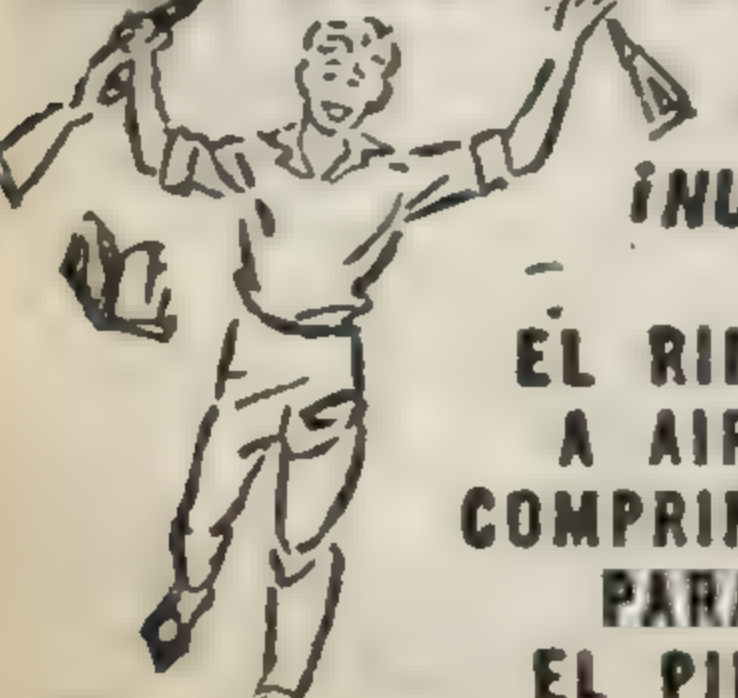 ¡NU
EL RI
A AI
COMPRI
PARA
EL PI